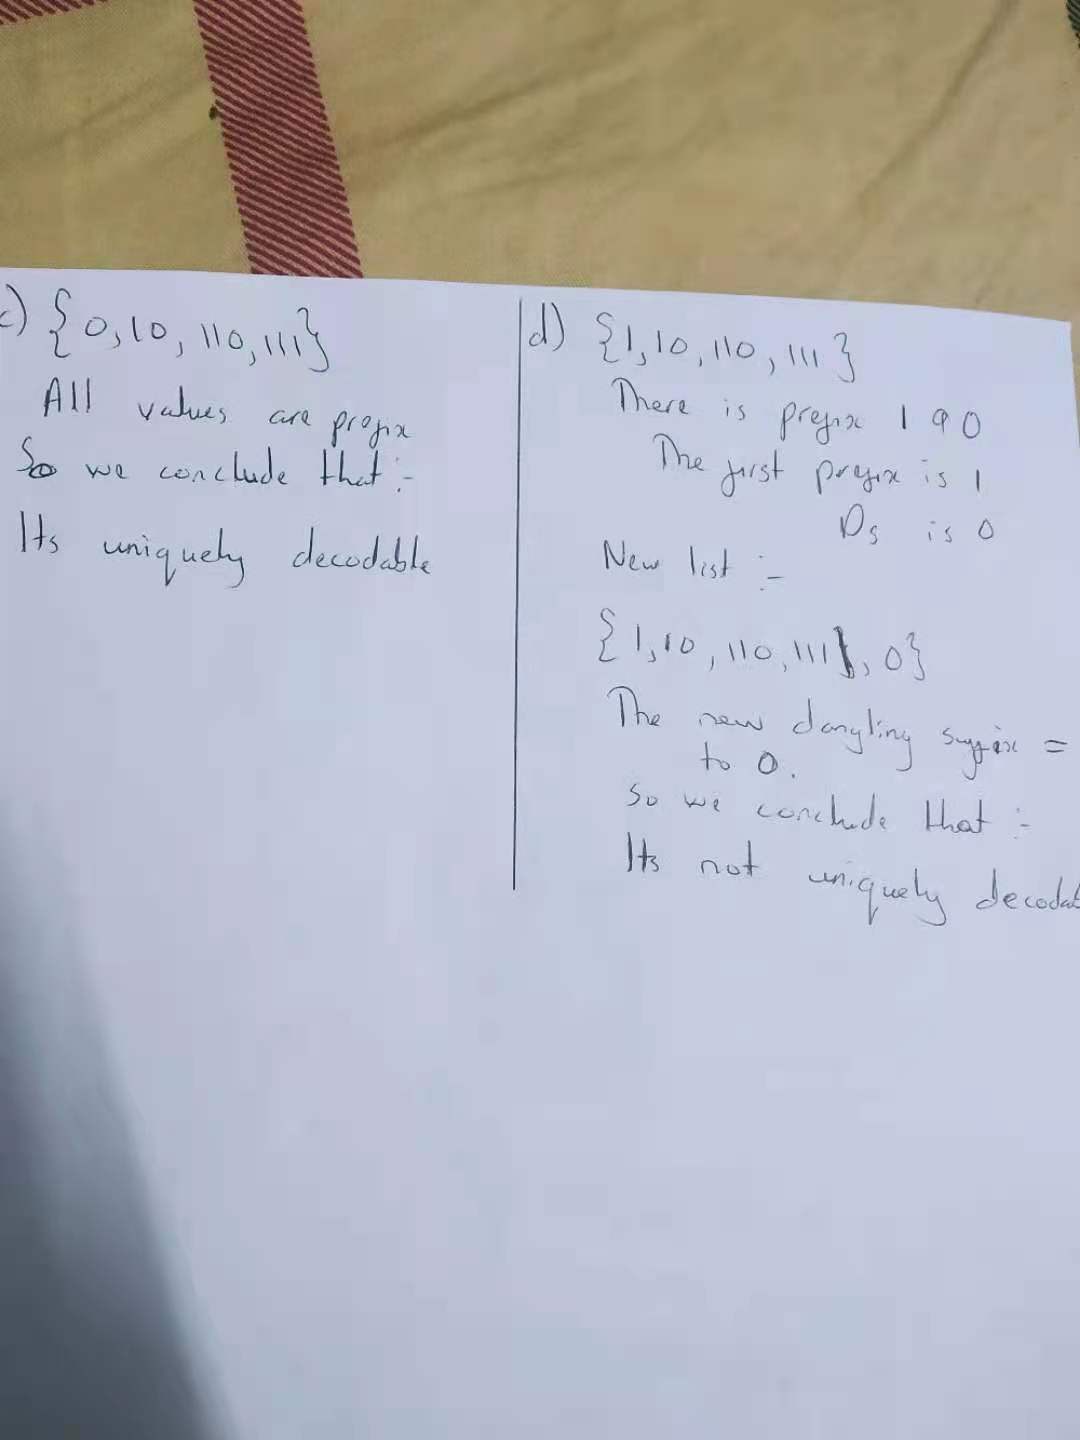 c) {0,10,110,111}
All values are prefix
So we conclude that :-
Its uniquely decodable
d) {1,10,110,111}
There is prefix 1 0
The first prefix is 1
Ds is 0
New list :-
{1,10,110,111,0}
The new dangling suffix =
to 0.
so we conclude that :-
Its not uniquely decodab